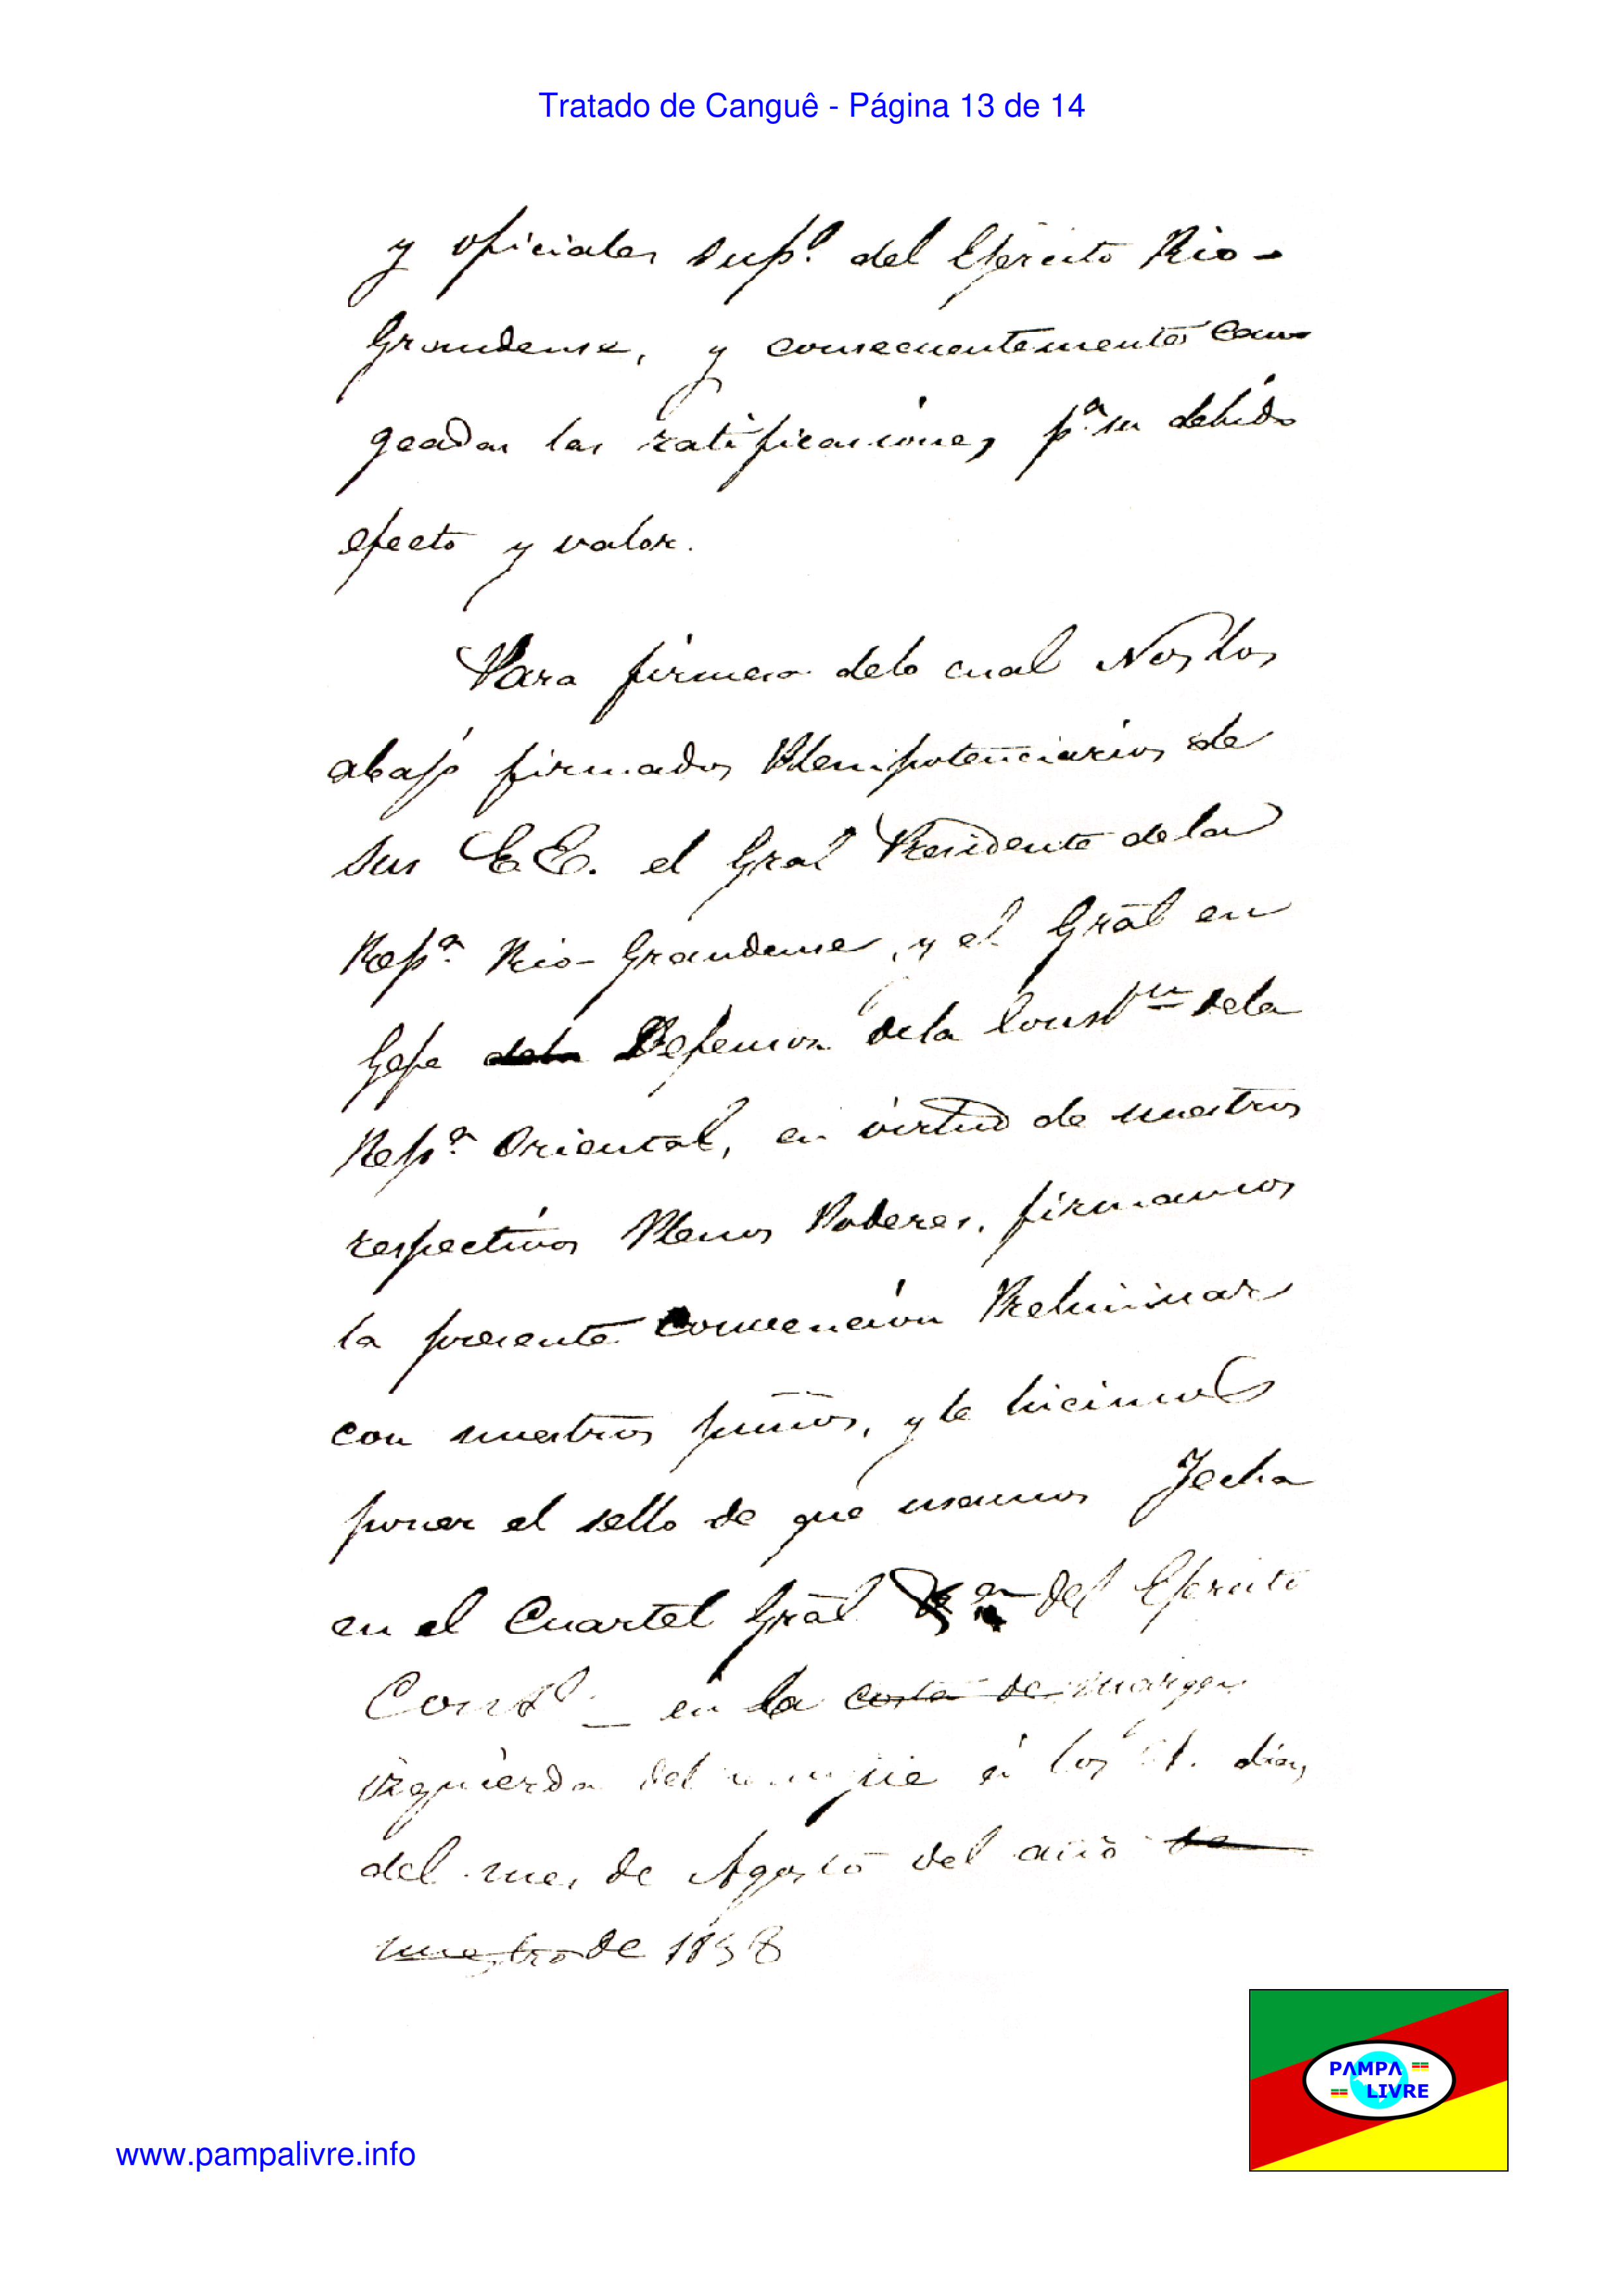 Tratado de Canguê - Página 13 de 14
y oficiales sup.s del Ejercito Rio-
Grandense, y consecuentemente can
geadas las ratificaciones p.a su debido
efecto y valor.
Para firmesa delo cual Nos los
abajo firmados Plenipotenciarios de
Sus EE. el Gral Presidente dela
Rep.a Rio-Grandense, y el Gral en
Gefe dela Defensor dela Const.n dela
Rep.a Oriental, en virtud de nuestros
respectivos Plenos Poderes, firmamos
la presente Convencion Preliminar
con nuestros puños, y le hicimos
poner el sello de que usamos Fecha
en el Cuartel Gral del Ejercito
Const.l en la costa de margen
izquierda del á los 21. dias
del mes de Agosto del año de
nuestro de 1838
PAMPA
LIVRE
www.pampalivre.info